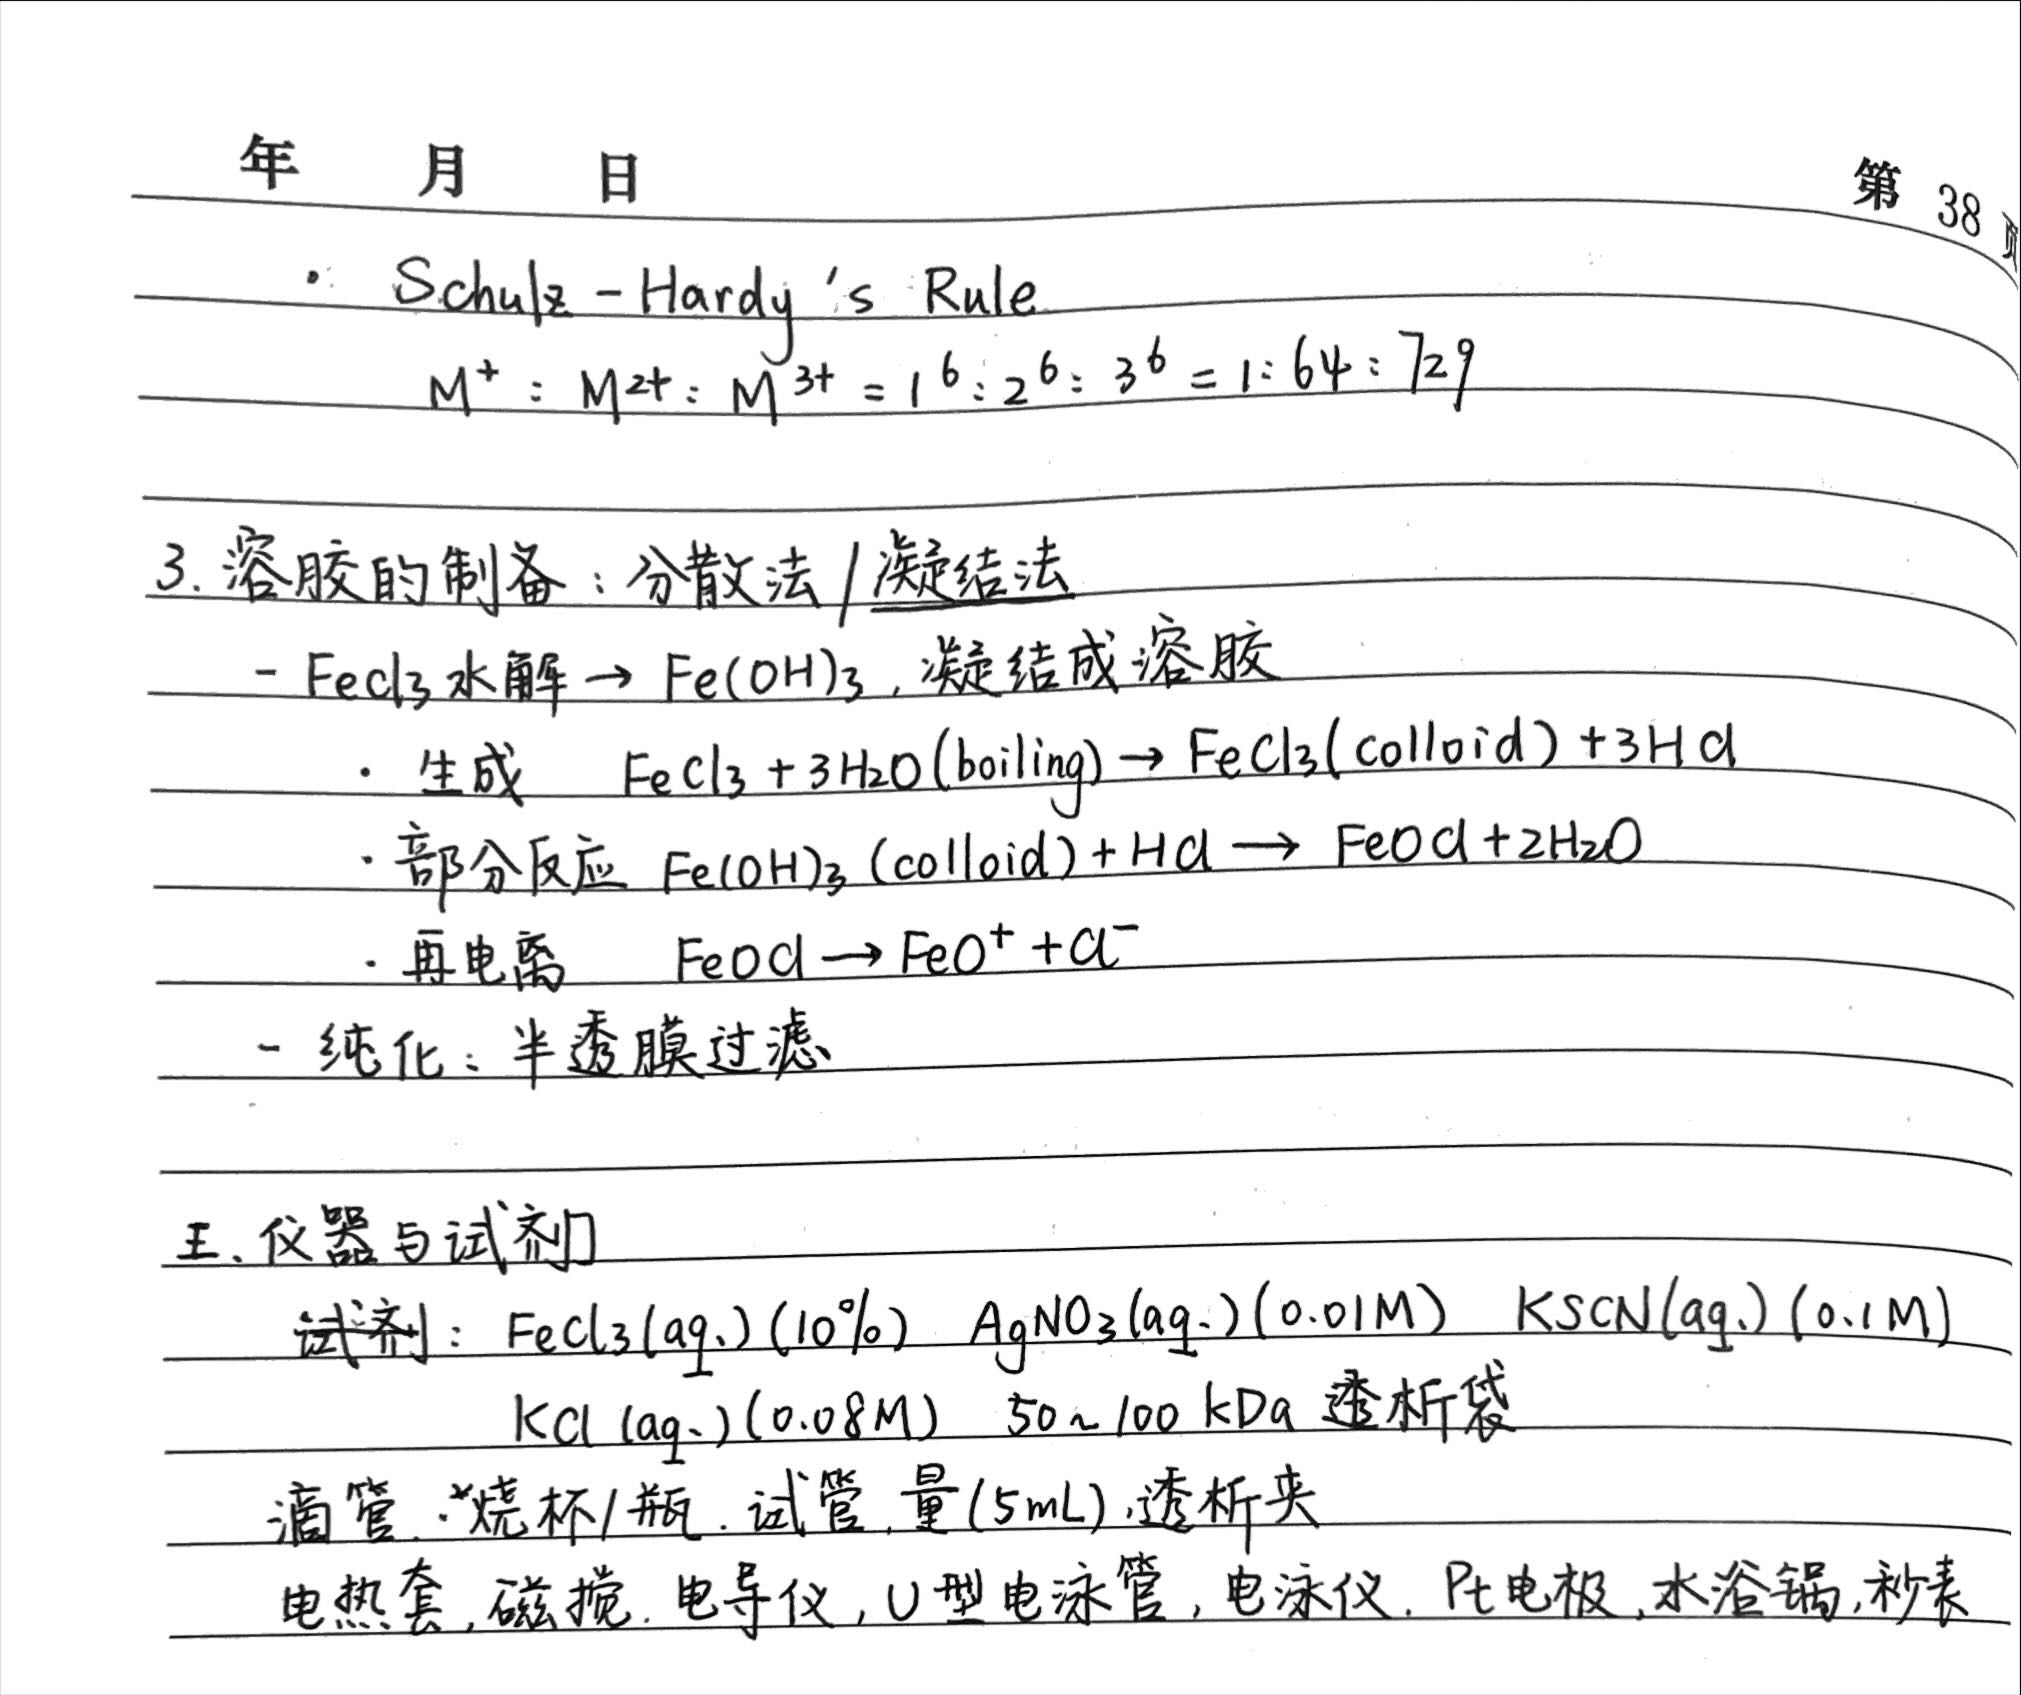 年 月 日 第 38 页
· Schulz-Hardy's Rule
M⁺ : M²⁺ : M³⁺ = 1⁶ : 2⁶ : 3⁶ = 1 : 64 : 729
3. 溶胶的制备：分散法 / 凝结法
- FeCl₃ 水解 → Fe(OH)₃, 凝结成溶胶
· 生成 FeCl₃ + 3H₂O (boiling) → FeCl₃ (colloid) + 3HCl
· 部分反应 Fe(OH)₃ (colloid) + HCl → FeOCl + 2H₂O
· 再电离 FeOCl → FeO⁺ + Cl⁻
- 纯化：半透膜过滤
三. 仪器与试剂
试剂：FeCl₃(aq.)(10%) AgNO₃(aq.)(0.01M) KSCN(aq.)(0.1M)
KCl(aq.)(0.08M) 50~100 kDa 透析袋
滴管. 烧杯/瓶. 试管, 量(5mL), 透析夹
电热套, 磁搅. 电导仪, U型电泳管, 电泳仪. Pt电极, 水浴锅, 秒表